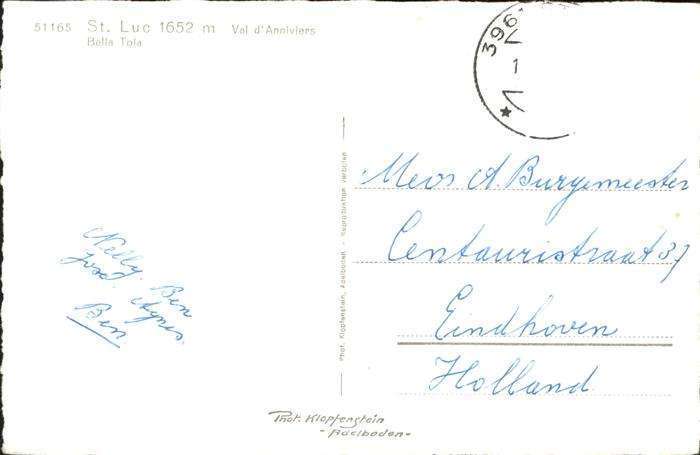 51165 St. Luc 1652 m Val d'Anniviers
Bella Tola
396
1
Phot. Klopfenstein, Adelboden. - Reproduktion verboten
Mevr A. Burgemeester
Centauristraat 37
Eindhoven
Holland
Nelly, Ben
Agnes.
Ben
Phot. Klopfenstein
- Adelboden -